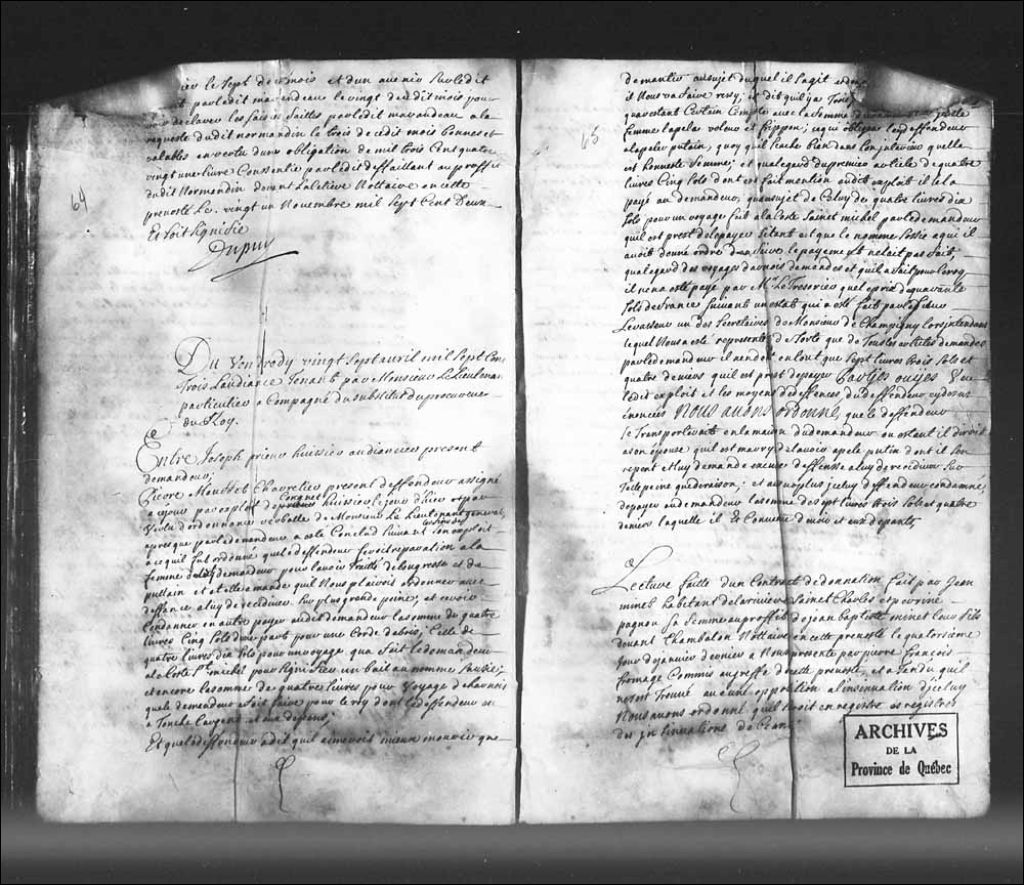 64
ier le sept de ce mois et dun avenir sur ledit
par ledit mavendeau le vingt dudit mois pour
declarer les saisies faittes par ledit mavandeau a la
requeste dudit normandin le trois de cedit mois bonnes et
valables en vertu dune obligation de mil trois Cent quatre
vingt une livre Consentie par ledit deffaillant au proffit
dudit Normandin devant Nottaire en cette
prevosté Le vingt un Novembre mil Sept Cent Deux
Et soit signifié
Dupuy
Du Vendredy vingt sept avril mil Sept Cent
Trois Laudiance Tenant par Monsieur Le Lieutenant
particulier a Compagné du substitut du procureur
du Roy.
Entre Joseph prieur huissier audiancier present
demandeur,
Pierre Chevrelier present deffendeur assigné
a ce jour par exploit de Congnet huissier le jour d'hier et par
Vertu dordonnance verballe de Monsieur Le Lieutenant general,
apres que par le demandeur a esté Conclud suivant son exploit
a ce quil fut ordonné que le deffendeur feroit reparation a la
femme dudit demandeur pour lavoir traitté de bougresse et de
puttain et et elle demande quil Nous plaise ordonner avec
deffance a luy de recidiver sur plus grande peine, et ce voir
Condanner en outre payer audit demandeur la somme de quatre
livres Cinq sols dune part pour une Corde de bois, Celle de
quatre livres dix sols pour un voyage qua fait le demandeur
a la Coste St. michel pour signifier un bail au nomme
et encore la somme de quatre livres pour Voyage
que le demandeur a fait faire pour le roy dont le deffendeur en
a Touché Largent et aux depens;
Et que le deffendeur a dit quil aimeroit mieux mourir que
65
demantir au sujet duquel il sagit
Nous et dit quil ya
quarestant Certain Compte avec la femme
femme lapela voleur et frippon; ce qui obligea le deffendeur
a lapeler putain, quoy quil sache bien dans Con quelle
est honneste femme; et qualegard du premier article de quatre
livres Cinq sols dont est fait mention audit exploit il le la
payé au demandeur, quansuyet de Celuy de quatre livres dix
sols pour un voyage fait a la Coste Sainct michel par le demandeur
quil est prest de le payer sitant est que le nomme a qui il
avoit donné ordre den faire le payement ne lait pas fait,
qualegard des voyages demandes et quil a fait pour le roy
il nen a esté payé par Mr. Le Tresorier quel de quarante
sols de France suivant un estat qui a esté fait par le sieur
Levasseur un des Secretaires de Monsieur de Champigny lors intendant
lequel Nous a esté representé de sorte que de Tous les articles demandes
par le demandeur il ne doit en tout que Sept livres trois sols et
quatre deniers quil est prest de payer Parties ouyes Veu
ledit exploit et les moyens de deffences du deffendeur cy dessus
enoncées Nous avons ordonné, que le deffendeur
se Transportera en la maison du demandeur ou estant il diroit
a son epouse quil est marry de lavoir apelé putin dont il son
repent et luy demande excuse deffense a luy de recidiver sur
telle peine que de raison; et au surplus iceluy deffendeur condamné
de payer au demandeur la somme de sept livres trois sols et quatre
deniers laquelle il est Convenu devoir et aux depents
Lecture faitte dun Contract de donnation fait par Jean
minet habitant de la riviere Sainct Charles et perrine
pagnou sa femme au proffit de jean baptiste minet leur fils
devant Chambalon Nottaire en cette prevosté le quatorsieme
jour de janvier dernier a Nous presenté par pierre François
fromage Commis au greffe de cette prevosté, et a Tendu quil
ne sest Trouvé aucune opposition a linsinuation diceluy
Nous avons ordonné quil seroit enregistré es registres
des jnsinuations de Ceans
ARCHIVES
DE LA
Province de Québec